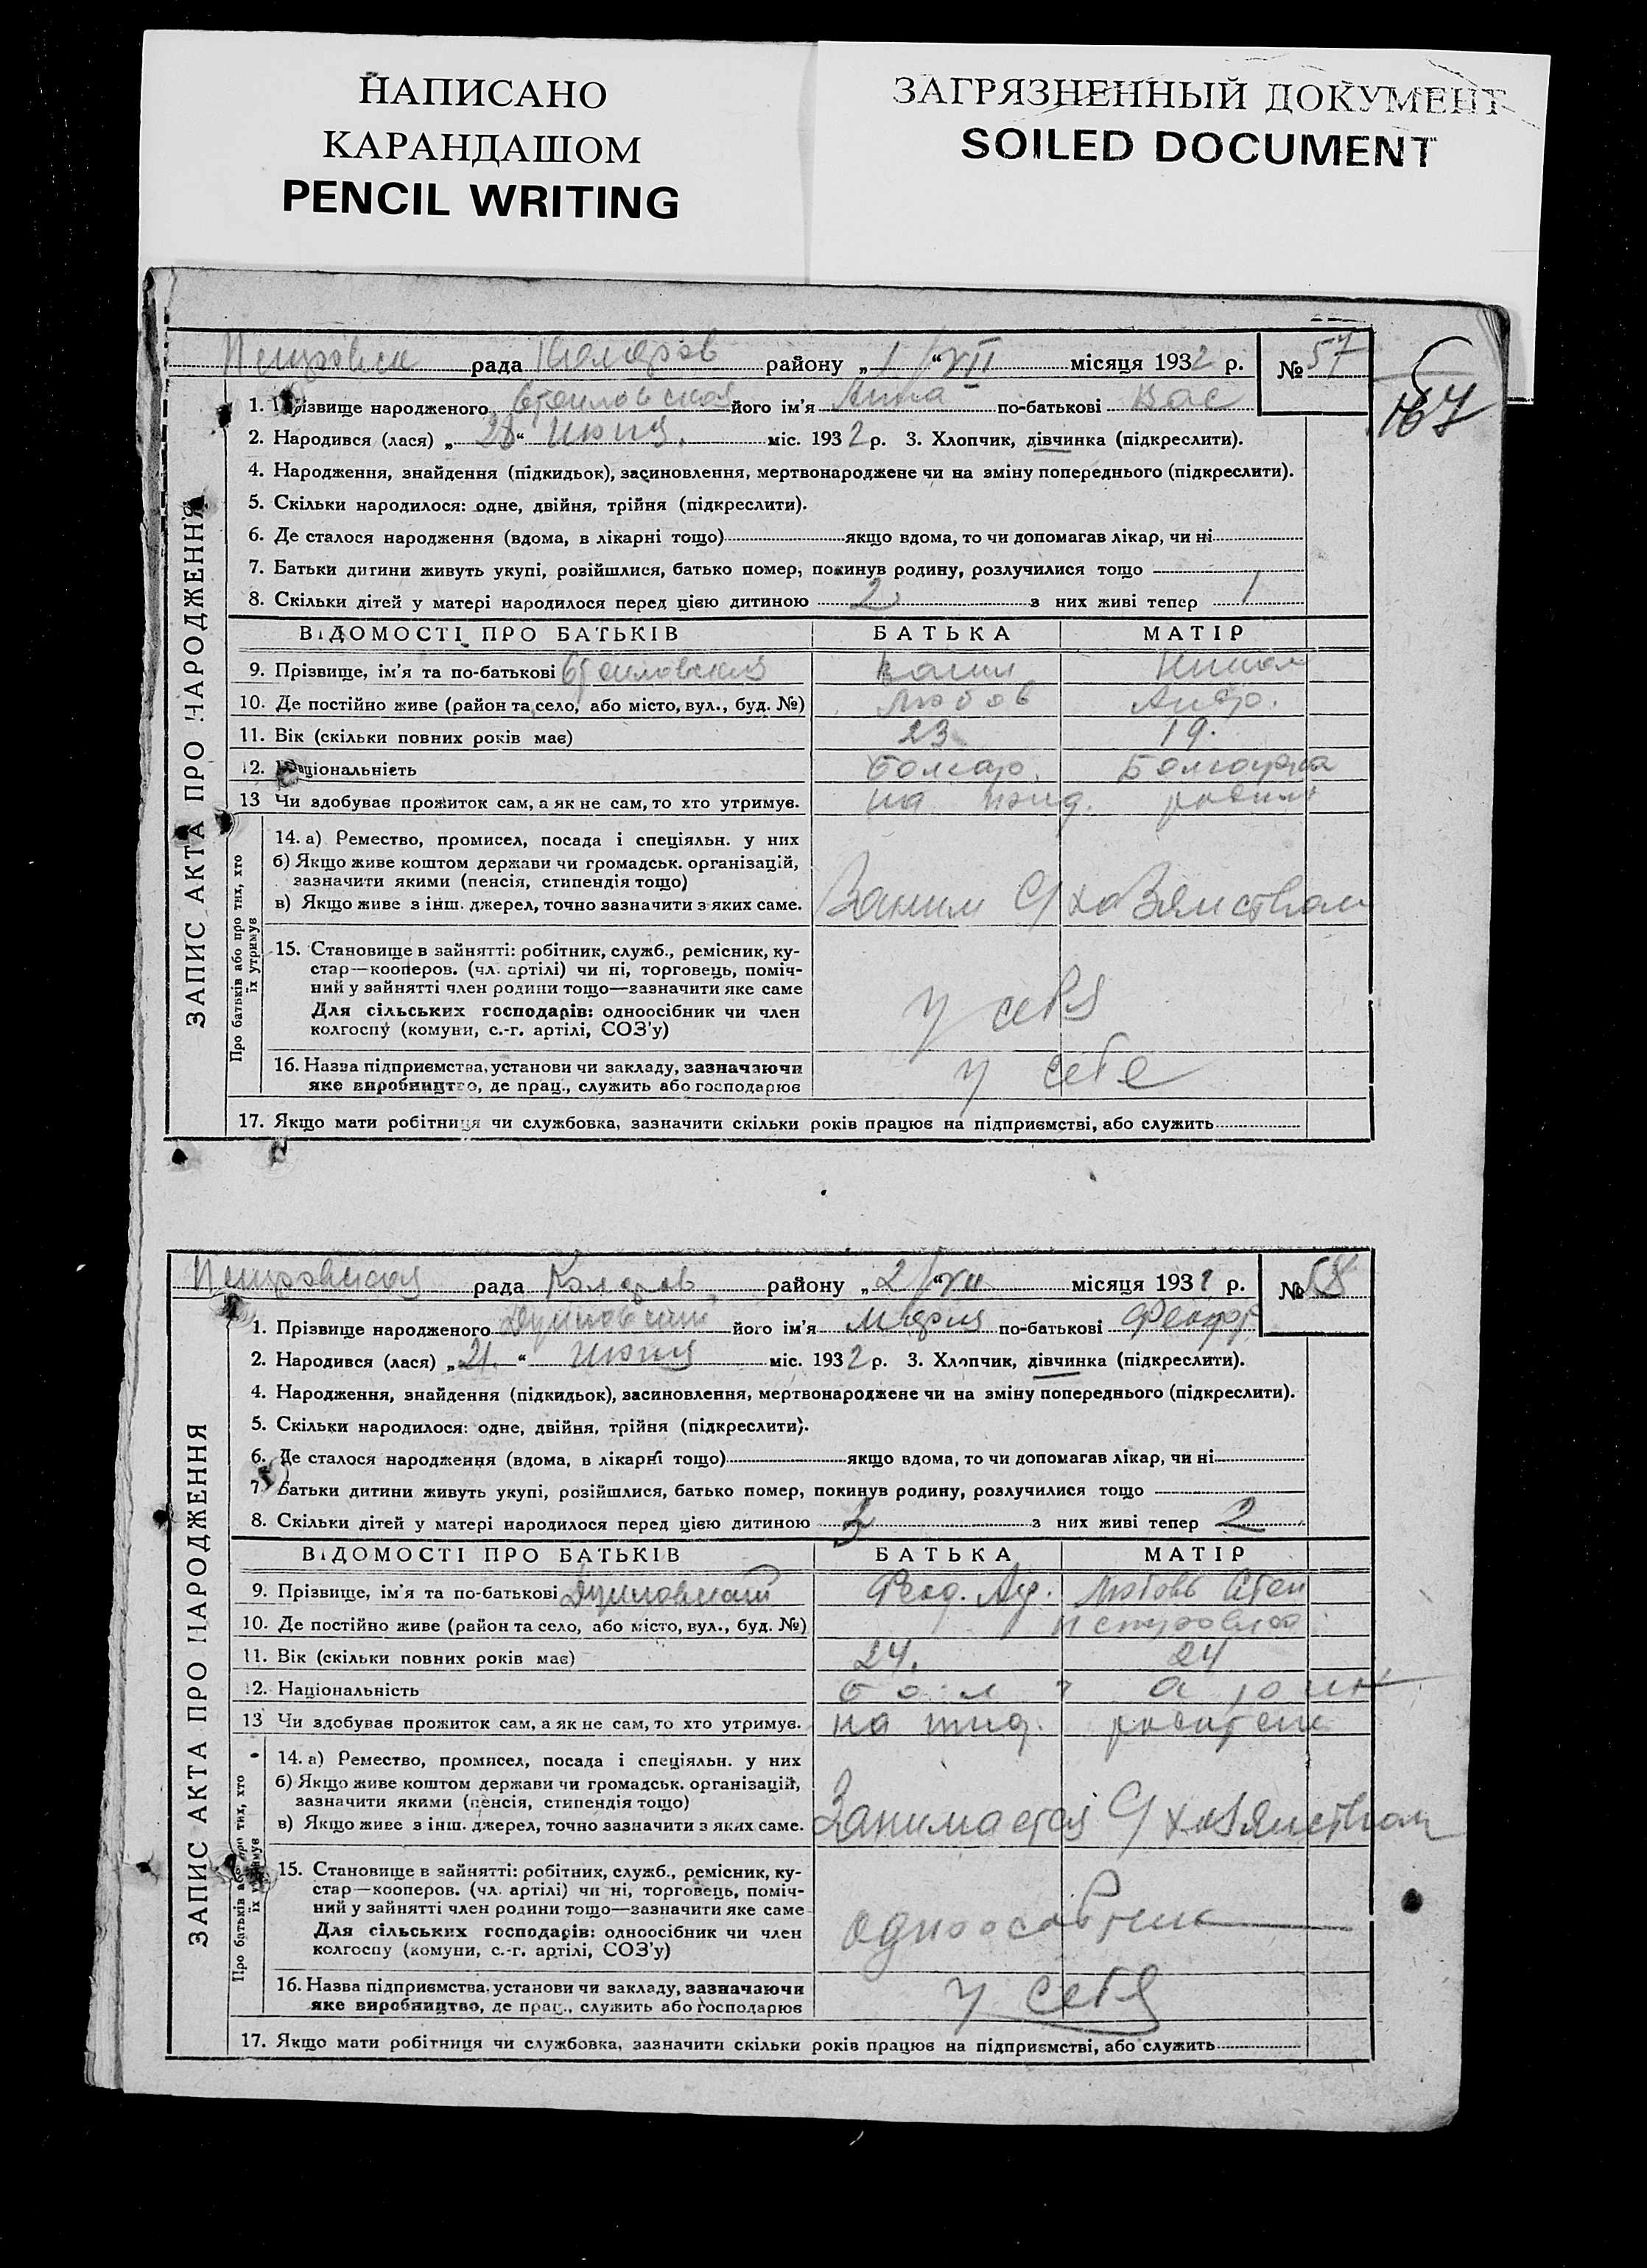 НАПИСАНО
КАРАНДАШОМ
PENCIL WRITING
ЗАГРЯЗНЕННЫЙ ДОКУМЕНТ
SOILED DOCUMENT
рада района району „1“ VII місяця 1932 р. № 57
1. Прізвище народженого його ім'я Анна по-батькові Вас
2. Народився (лася) „28“ июня. міс. 1932 р. 3. Хлопчик, дівчинка (підкреслити).
4. Народження, знайдення (підкидьок), засиновлення, мертвонароджене чи на зміну попереднього (підкреслити).
5. Скільки народилося: одне, двійня, трійня (підкреслити).
6. Де сталося народження (вдома, в лікарні тощо) якщо вдома, то чи допомагав лікар, чи ні
7. Батьки дитини живуть укупі, розійшлися, батько помер, покинув родину, розлучилися тощо
8. Скільки дітей у матері народилося перед цією дитиною 2 з них живі тепер 1
ВІДОМОСТІ ПРО БАТЬКІВ БАТЬКА МАТІР
9. Прізвище, ім'я та по-батькові
10. Де постійно живе (район та село, або місто, вул., буд. №)
11. Вік (скільки повних років має) 23 19.
12. Національність болгар. Болгарка
13 Чи здобуває прожиток сам, а як не сам, то хто утримує. на ижд. родит
14. а) Ремество, промисел, посада і спеціяльн. у них
б) Якщо живе коштом держави чи громадськ. організацій,
зазначити якими (пенсія, стипендія тощо)
в) Якщо живе з інш. джерел, точно зазначити з яких саме. Заним С/хозяиством
15. Становище в зайнятті: робітник, служб., ремісник, ку-
стар—кооперов. (чл. артілі) чи ні, торговець, поміч-
ний у зайнятті член родини тощо—зазначити яке саме
Для сільських господарів: одноосібник чи член
колгоспу (комуни, с.-г. артілі, СОЗ'у) у себя
16. Назва підприємства, установи чи закладу, зазначаючи
яке виробництво, де прац., служить або господарює у себе
17. Якщо мати робітниця чи службовка, зазначити скільки років працює на підприємстві, або служить
ЗАПИС АКТА ПРО НАРОДЖЕННЯ
Про батьків або про тих, хто
їх утримує
167
Петровская рада Коларов, району „2“ VII місяця 1932 р. № 58
1. Прізвище народженого його ім'я Мария по-батькові Феодр
2. Народився (лася) „21.“ июня міс. 1932 р. 3. Хлопчик, дівчинка (підкреслити).
4. Народження, знайдення (підкидьок), засиновлення, мертвонароджене чи на зміну попереднього (підкреслити).
5. Скільки народилося: одне, двійня, трійня (підкреслити).
6. Де сталося народження (вдома, в лікарні тощо) якщо вдома, то чи допомагав лікар, чи ні
7. Батьки дитини живуть укупі, розійшлися, батько помер, покинув родину, розлучилися тощо
8. Скільки дітей у матері народилося перед цією дитиною з них живі тепер 2
ВІДОМОСТІ ПРО БАТЬКІВ БАТЬКА МАТІР
9. Прізвище, ім'я та по-батькові Феод. Любовь Степ
10. Де постійно живе (район та село, або місто, вул., буд. №)
11. Вік (скільки повних років має) 24. 24
12. Національність
13 Чи здобуває прожиток сам, а як не сам, то хто утримує. на ижд. родители
14. а) Ремество, промисел, посада і спеціяльн. у них
б) Якщо живе коштом держави чи громадськ. організацій,
зазначити якими (пенсія, стипендія тощо)
в) Якщо живе з інш. джерел, точно зазначити з яких саме. Занимается С/хозяиством
15. Становище в зайнятті: робітних, служб., ремісник, ку-
стар—кооперов. (чл. артілі) чи ні, торговець, поміч-
ний у зайнятті член родини тощо—зазначити яке саме
Для сільських господарів: одноосібник чи член
колгоспу (комуни, с.-г. артілі, СОЗ'у)
16. Назва підприємства, установи чи закладу, зазначаючи
яке виробництво, де прац., служить або господарює у себя
17. Якщо мати робітниця чи службовка, зазначити скільки років працює на підприємстві, або служить
ЗАПИС АКТА ПРО НАРОДЖЕННЯ
Про батьків або про тих, хто
їх утримує